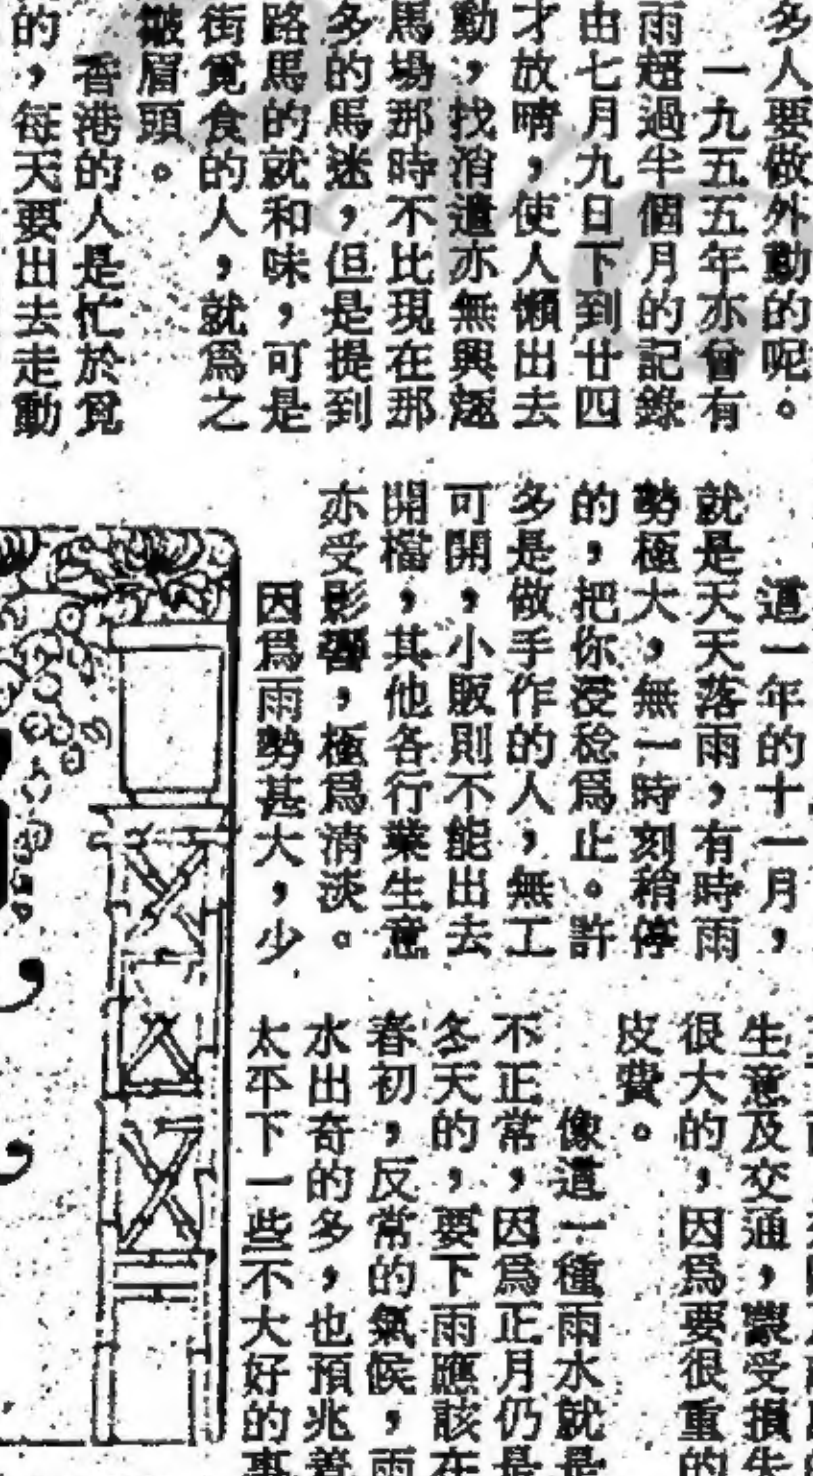 多人要做外勤的呢。
一九五五年亦曾有
雨超過半個月的記錄
由七月九日下到廿四
才放晴，使人懶出去
動，找消遣亦無興趣
馬場那時不比現在那
多的馬迷，但是提到
路馬的就和味，可是
街覓食的人，就爲之
皺眉頭。
香港的人是忙於覓
的，每天要出去走動
這一年的十一月，
就是天天落雨，有時雨
勢極大，無一時刻稍停
的，把你浸稔爲止。許
多是做手作的人，無工
可開，小販則不能出去
開檔，其他各行業生意
亦受影響，極爲清淡。
因爲雨勢甚大，少
生意及交通，蒙受損失
很大的，因爲要很重的
皮費。
像這一種雨水就是
不正常，因爲正月仍是
冬天的，要下雨應該在
春初，反常的氣候，雨
水出奇的多，也預兆着
太平下一些不大好的事